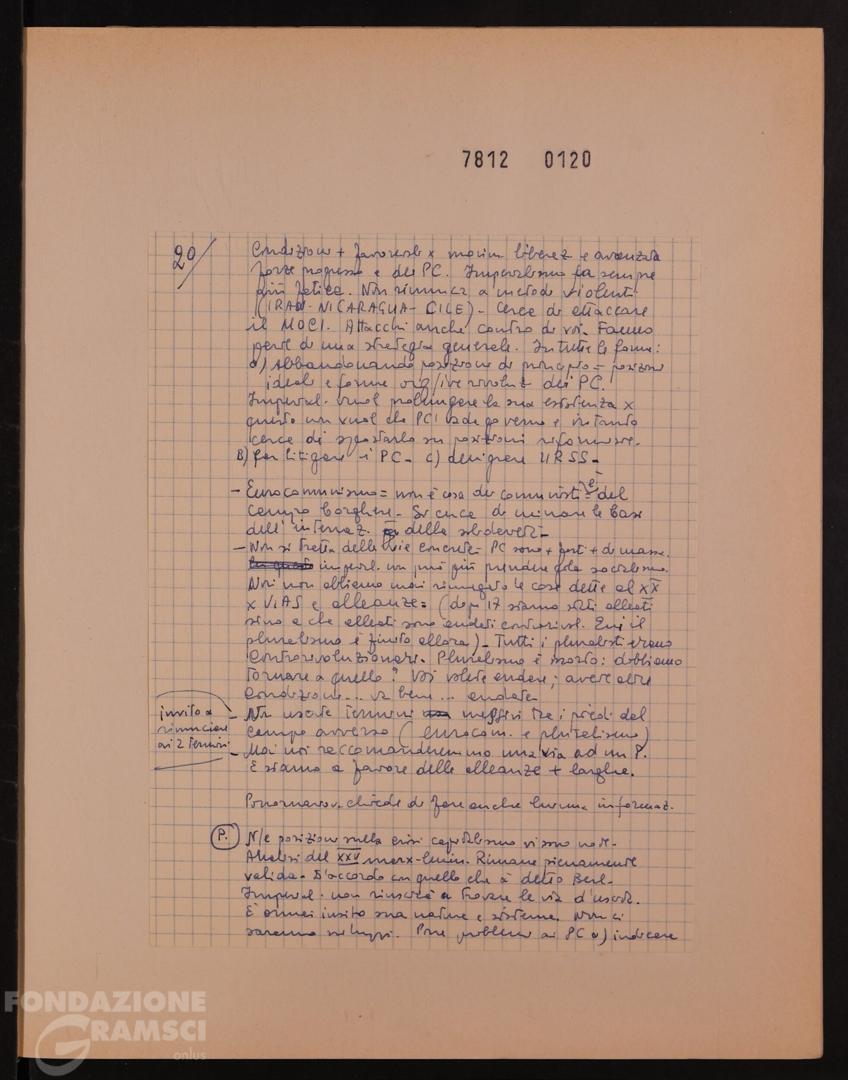 7812 0120
20/
Condizioni + favorevoli x movim. liberaz. e avanzata
forze progresso e dei PC. Imperialismo fa sempre
più fatica. Non rinuncia a metodi violenti
(IRAN - NICARAGUA - CILE) - Cerca di attaccare
il MOCI. Attacchi anche contro di voi. Fanno
parte di una strategia generale. In tutte le forme:
a) Abbandonando posizione di principio = posizioni
ideali e forme org/ive rivoluz. dei PC.
Imperial. vuol prolungare la sua esistenza x
questo non vuol che PCI vada governo e intanto
cerca di spostarlo su posizioni riformiste.
B) far litigare i PC - c) denigrare URSS -
- Eurocomunismo = non è cosa dei comunisti è del
campo borghese - Si cerca di minare le basi
dell'internaz. della solidarietà -
- Non si tratta delle vie concrete - PC sono + forti + di massa.
imperial. non può più prendere gola socialismo.
Noi non abbiamo mai rinnegato le cose dette al XX
x VIAS e alleanze = (dopo 17 siamo stati alleati
sino a che alleati sono andati controrivol. Qui il
pluralismo è finito allora) - Tutti i pluralisti erano
controrivoluzionari. Pluralismo è morto: dobbiamo
tornare a quello? Voi volete andare; avete altre
condizioni... va bene... andate -
invito a
rinunciare
ai 2 termini
- Non usate termini messivi tra i piedi dal
campo avverso (eurocom. e pluralismo)
- Mai noi raccomanderemmo una via ad un P.
E siamo a favore delle alleanze + larghe.
Ponomariov chiede di fare anche buona informaz.
P. N/e posizioni sulla crisi capitalismo vi sono note -
Analisi del XXV marx-lenin. Rimane pienamente
valida - D'accordo con quello che à detto Berl -
Imperial. non riuscirà a trovare le vie d'uscita.
È ormai insito sua natura e sistema. Non ci
saranno sviluppi. Pone problemi ai PC a) indicare
FONDAZIONE
GRAMSCI
onlus